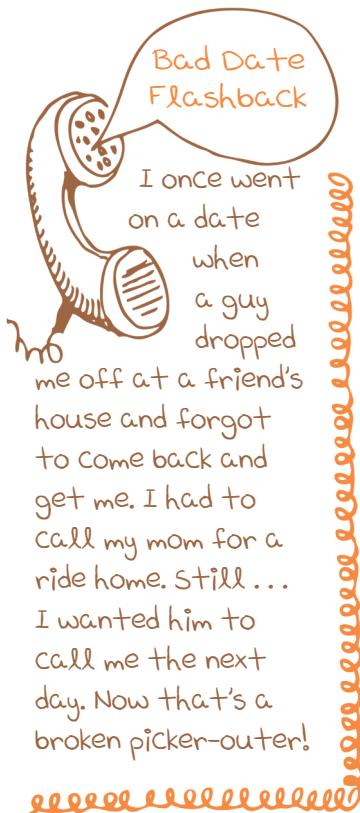 Bad Date
Flashback
I once went
on a date
when
a guy
dropped
me off at a friend's
house and forgot
to come back and
get me. I had to
call my mom for a
ride home. Still . . .
I wanted him to
call me the next
day. Now that's a
broken picker-outer!